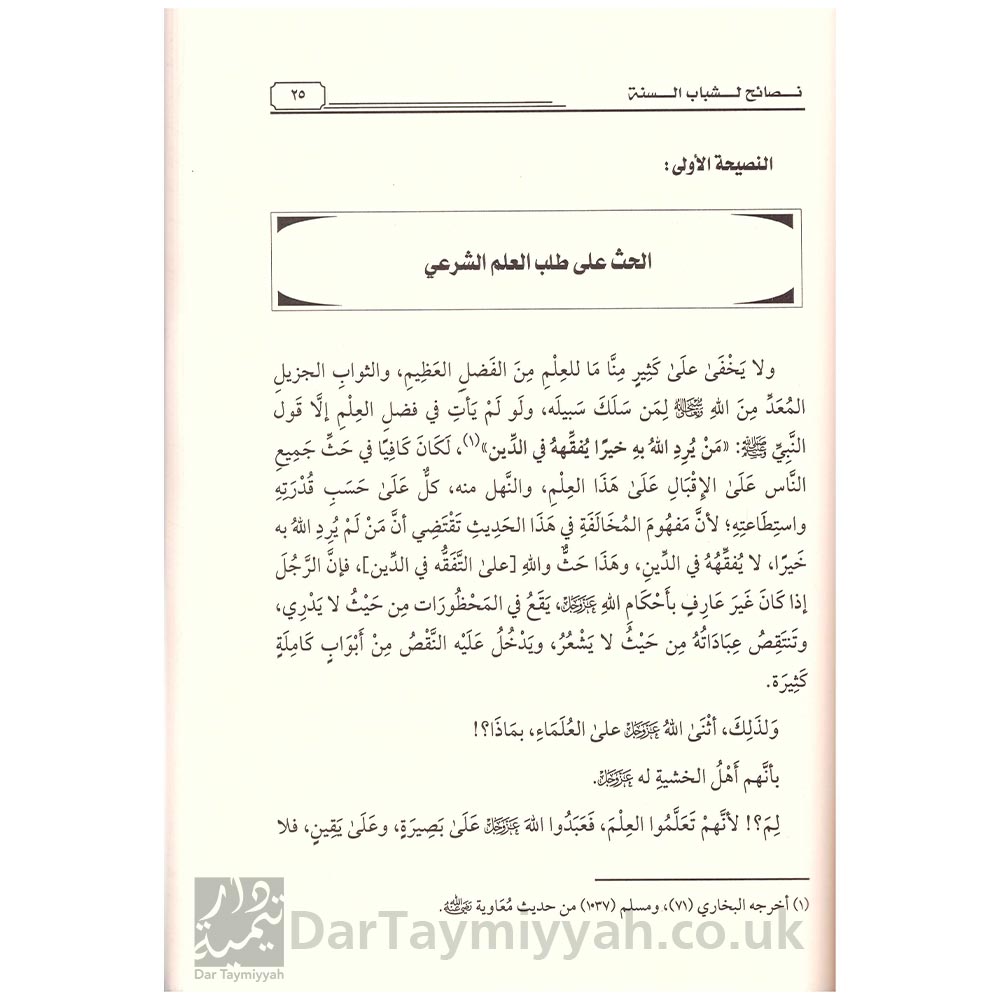 نصائح لشباب السنة
٢٥
النصيحة الأولى:
الحث على طلب العلم الشرعي
ولا يَخْفَىٰ علَىٰ كَثِيرٍ مِنَّا مَا للعِلْمِ مِنَ الفَضلِ العَظِيمِ، والثوابِ الجزيلِ
المُعَدِّ مِنَ اللهِ لِمَن سَلَكَ سَبيلَه، ولَو لَمْ يَأتِ في فضلِ العِلْمِ إلَّا قَول
النَّبِيِّ ﷺ: «مَنْ يُرِدِ اللهُ بهِ خيرًا يُفقِّههُ في الدِّين»(١)، لَكَانَ كَافِيًا في حَثِّ جَمِيعِ
النَّاس عَلَىٰ الإقْبَالِ عَلَىٰ هَذَا العِلْمِ، والنَّهل منه، كلٌّ عَلَىٰ حَسَبِ قُدْرَتِهِ
واستِطَاعتِهِ؛ لأنَّ مَفهُومَ المُخَالَفَةِ في هَذَا الحَدِيثِ تَقْتَضِي أنَّ مَنْ لَمْ يُرِدِ اللهُ به
خَيرًا، لا يُفقِّهُهُ في الدِّينِ، وهَذَا حَثٌّ واللهِ [علىٰ التَّفَقُّه في الدِّين]، فإنَّ الرَّجُلَ
إذا كَانَ غَيرَ عَارِفٍ بأَحْكَامِ اللهِ عَزَّوَجَلَّ، يَقَعُ في المَحْظُورَات مِن حَيْثُ لا يَدْرِي،
وتَنتَقِصُ عِبَادَاتُهُ مِن حَيْثُ لا يَشْعُرُ، ويَدْخُلُ عَلَيْه النَّقْصُ مِنْ أَبْوَابٍ كَامِلَةٍ
كَثِيرَة.
وَلذَلِكَ، أثْنَىٰ اللهُ عَزَّوَجَلَّ علىٰ العُلَمَاءِ، بمَاذَا؟!
بأنَّهم أَهْلُ الخشيةِ له عَزَّوَجَلَّ.
لِمَ؟! لأنَّهمْ تَعَلَّمُوا العِلْمَ، فَعَبَدُوا اللهَ عَزَّوَجَلَّ عَلَىٰ بَصِيرَةٍ، وعَلَىٰ يَقِينٍ، فلا
(١) أخرجه البخاري (٧١)، ومسلم (١٠٣٧) من حديث مُعَاوية رَضِيَ اللَّهُ عَنْهُ.
دار تيمية
Dar Taymiyyah
DarTaymiyyah.co.uk